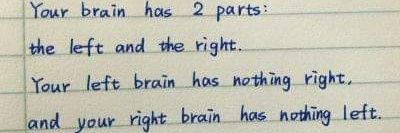 Your brain has 2 parts:
the left and the right.
Your left brain has nothing right,
and your right brain has nothing left.